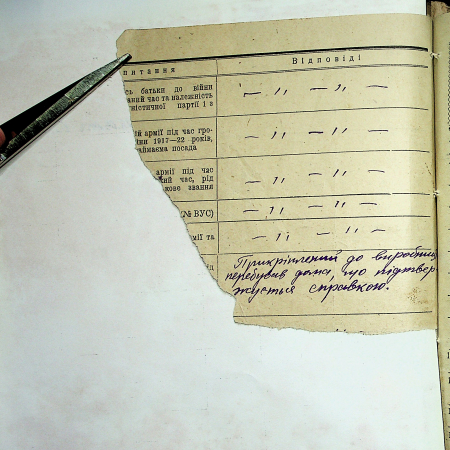 питання Відповіді
сь батьки до війни — „ — „ —
аний час та належність
ністичної партії і з
ій армії під час гро- — „ — „ —
їни 1917—22 років,
займаєма посада
армії під час — „ — „ —
кий час, рід
кове звання
(№ ВУС) — „ — „ —
мії та — „ — „ —
Прикріплений до виробниц
перебував дома, що підтвер-
жується справкою.